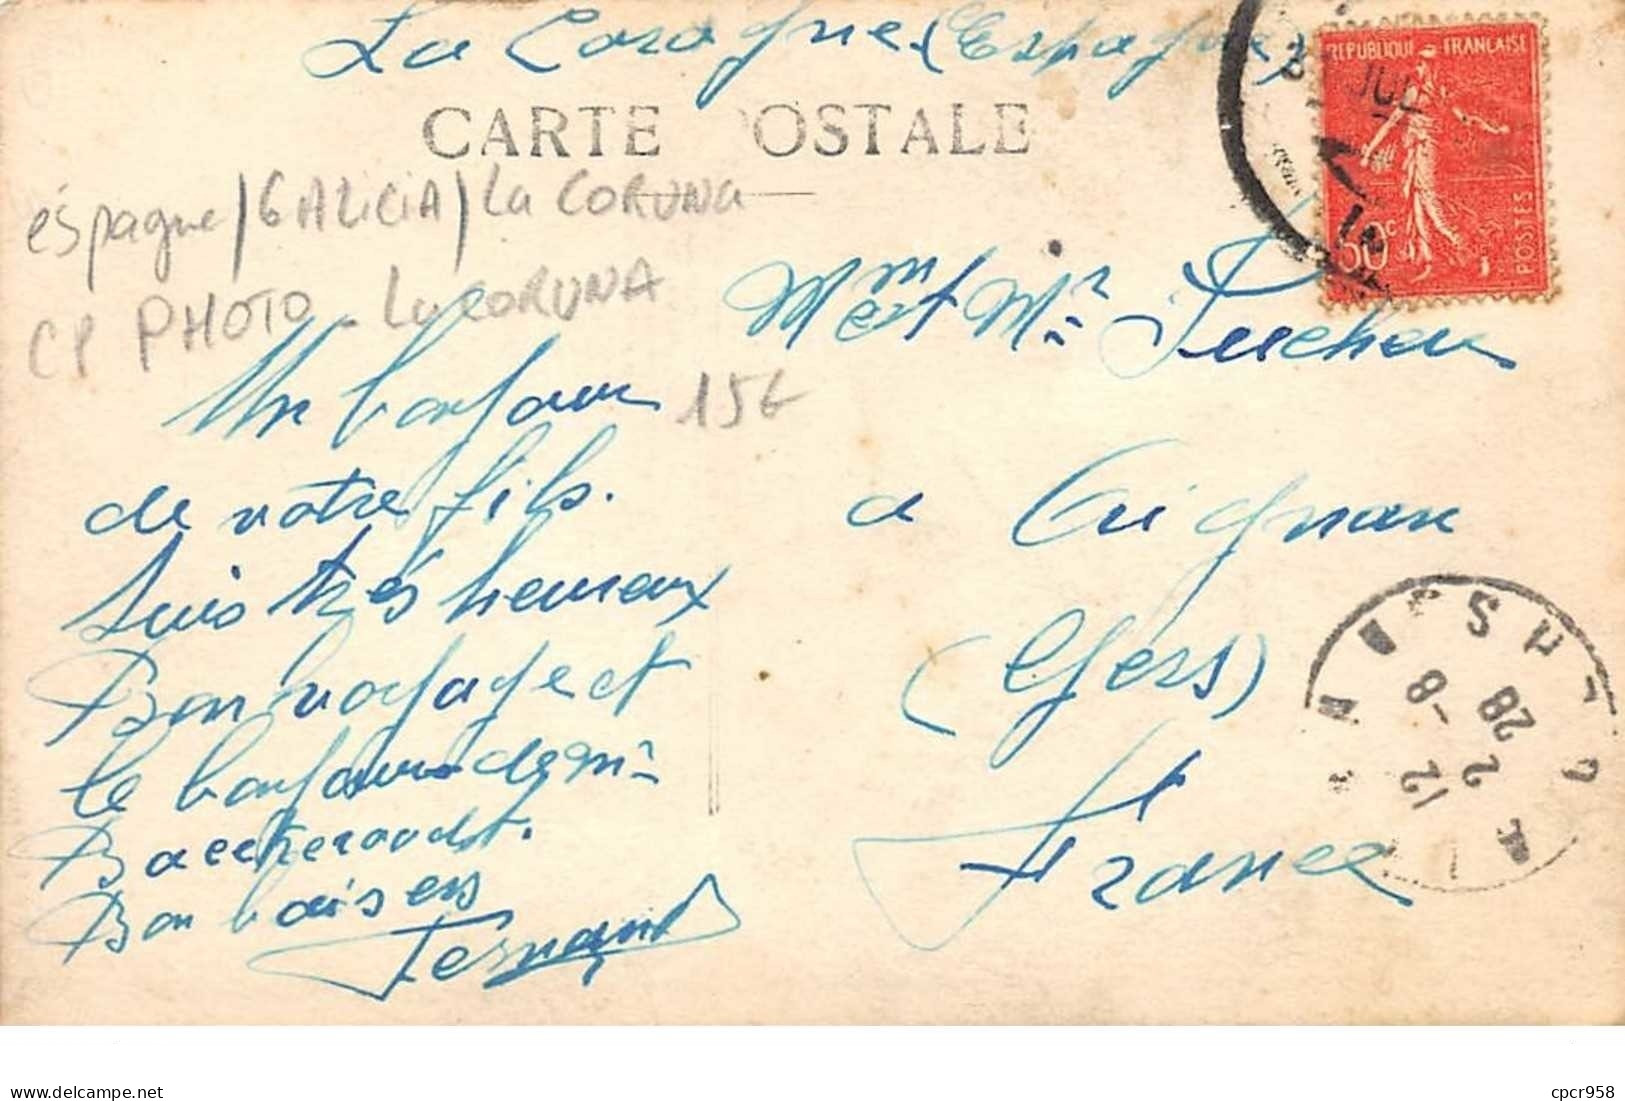 La Corogne (Espagne)
CARTE POSTALE
REPUBLIQUE FRANÇAISE
POSTES
50c
espagne/GALICIA/La CORUNA
CP PHOTO - La CORUNA
15€
Mme et Mr
Un bonjour
de votre fils.
Suis très heureux
Bon voyage et
le bonjour de Mr
Bon baisers
Fernand
a
(Gers)
France
12 - 8
2 28
cpcr958